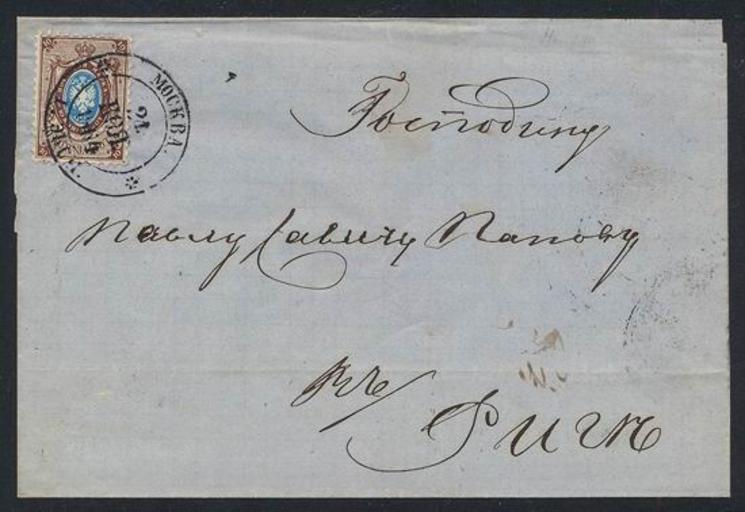 МОСКВА.
24
Господину
Павлу Савичу Попову
въ Ригѣ